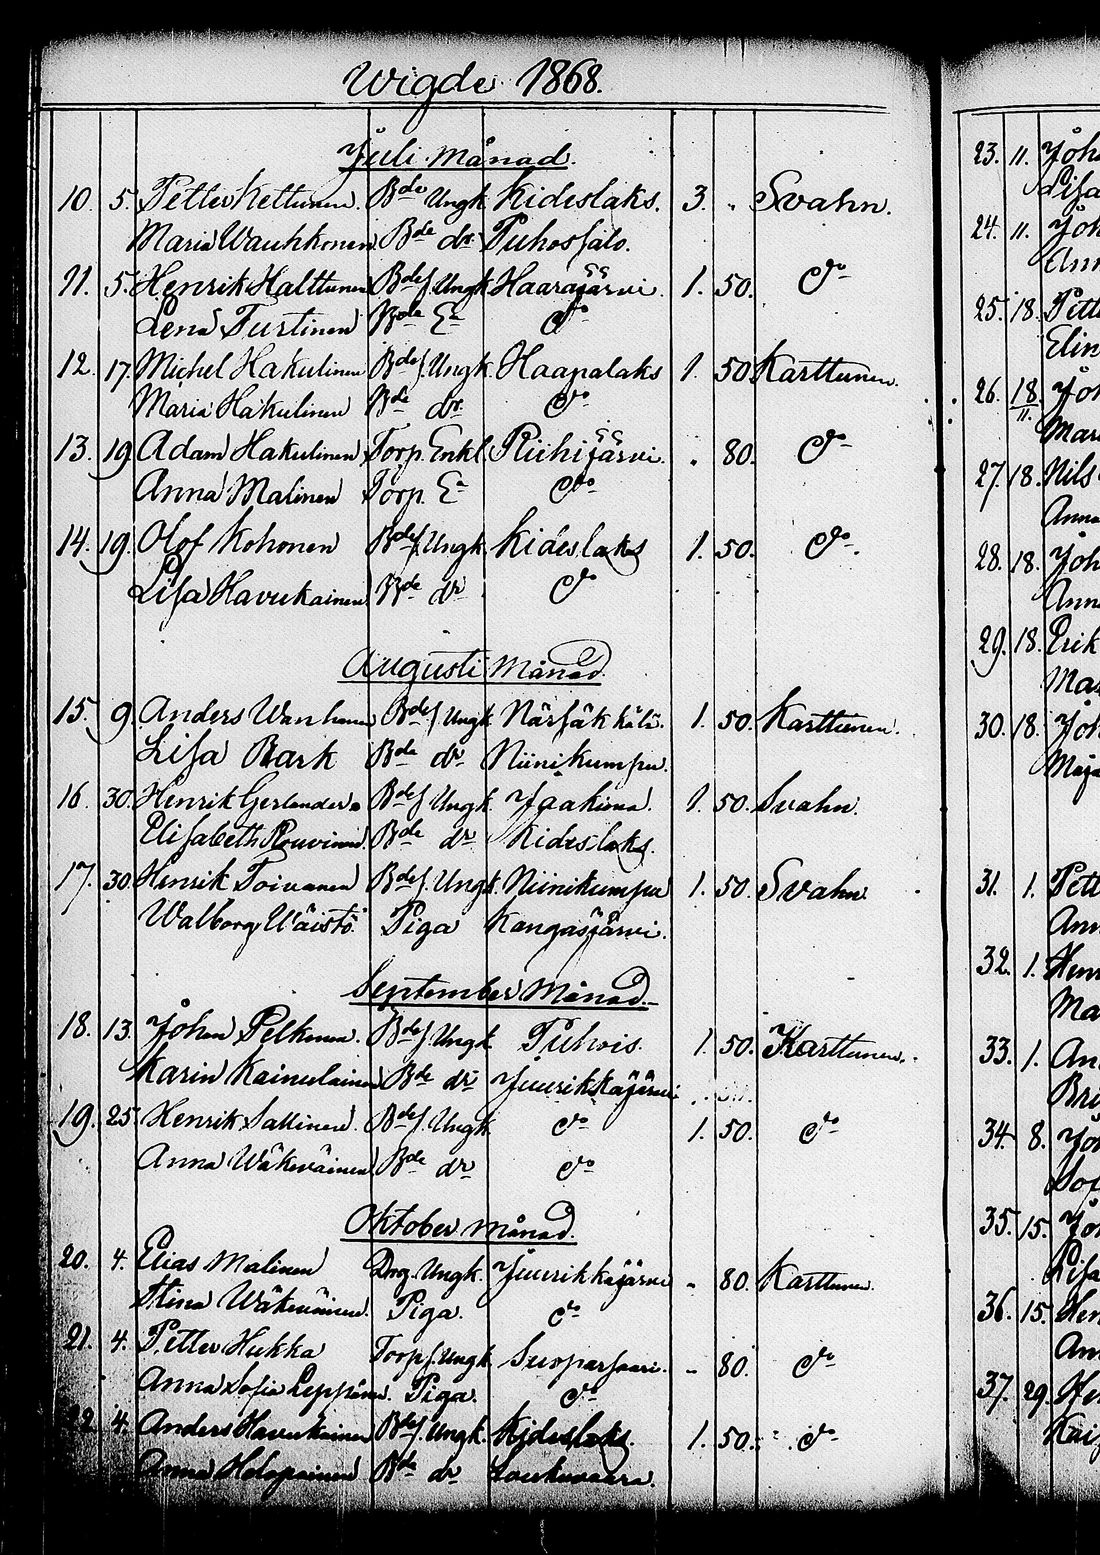 Wigde 1868.
Juli månad.
10. 5. Petter Kettunen. Bde Ungk. Kideslaks. 3. " Svahn.
Maria Wauhkonen Bde dr. Puhossalo.
11. 5. Henrik Halttunen Bdes. Ungk Haarajärvi. 1. 50. do
Lena Turtinen Bde Ea do
12. 17. Michel Hakulinen Bdes. Ungk. Haapalaks 1. 50. Karttunen.
Maria Hakulinen Bde dr. do
13. 19. Adam Hakulinen Torp. Enkl. Riihijärvi. " 80. do
Anna Malinen Torp. Ea do
14. 19. Olof Kohonen Bdes. Ungk. Kideslaks 1. 50. do.
Lisa Havukainen Bde dr do
Augusti månad.
15. 9. Anders Wanhanen Bdes. Ungk Närsäkkälä. 1. 50. Karttunen.
Lisa Bark Bde dr Niinikumpu.
16. 30. Henrik Gerlander. Bdes. Ungk. Jaakima. 1. 50. Svahn.
Elisabeth Rouvinen. Bde dr Kideslaks.
17. 30. Henrik Toivanen Bdes. Ungk. Niinikumpu 1. 50. Svahn.
Walborg Wäistö Piga Kangasjärvi.
September månad.
18. 13. Johan Pelkonen. Bdes. Ungk Puhois. 1. 50. Karttunen.
Karin Kainulainen Bde dr Juurikkajärvi
19. 25. Henrik Sallinen. Bdes. Ungk do 1. 50. do
Anna Wäkeväinen Bde dr do
Oktober månad.
20. 4. Elias Malinen Drg. Ungk. Juurikkajärvi - 80. Karttunen.
Stina Wäkeväinen. Piga. do
21. 4. Petter Hukka Torps. Ungk Suoparsaari. - 80. do
Anna Sofia Leppänen. Piga. do
22. 4. Anders Havukainen Bdes. Ungk. Kideslaks. 1. 50. do
Anna Holopainen Bde dr
23. 11. Joh
Lisa
24. 11. Joh
Ann
25. 18. Pett
Elin
26. 18. Joh
11. Mar
27. 18. Nils
Anna
28. 18. Joh
Ann
29. 18. Erik
Ma
30. 18. Joh
Maja
31. 1. Pett
Ann
32. 1. Hen
Ma
33. 1. An
Bri
34. 8. Jo
So
35. 15. Jo
Lisa
36. 15. Hen
An
37. 29. He
Kai